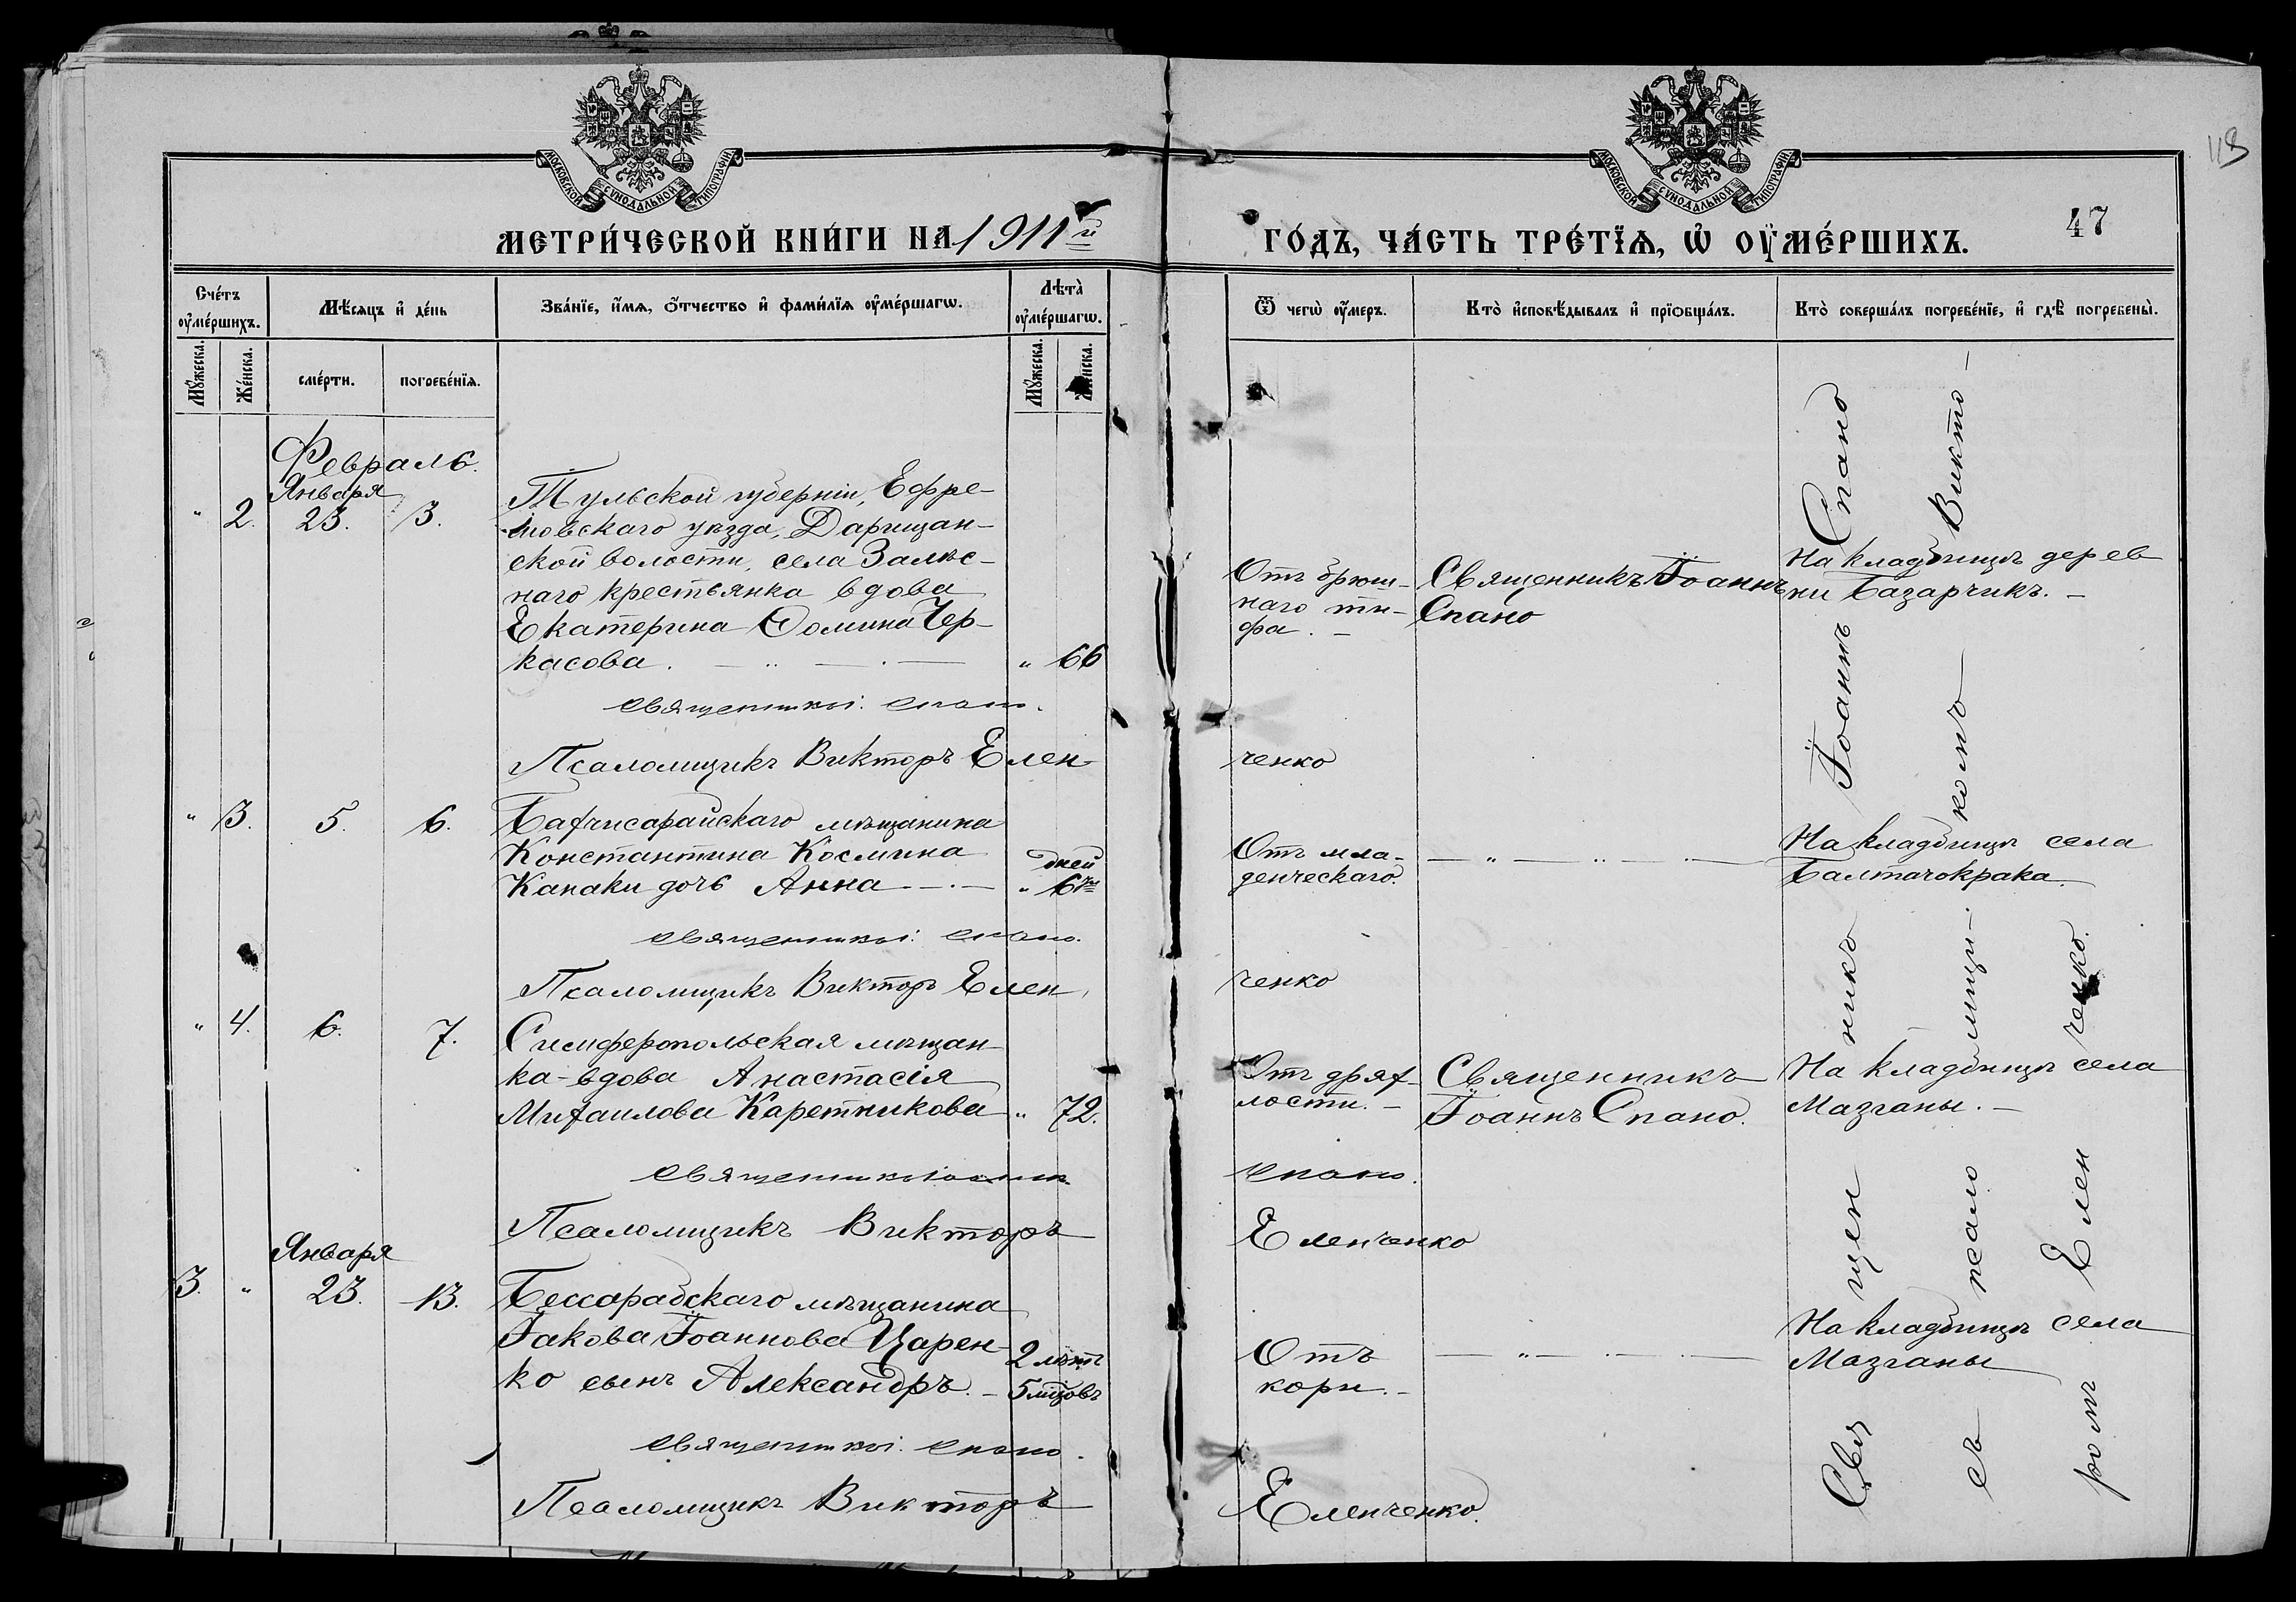 118
МОСКОВСКОЙ СѴНОДАЛЬНОЙ ТИПОГРАФІИ
МОСКОВСКОЙ СѴНОДАЛЬНОЙ ТИПОГРАФІИ
МЕТРИ́ЧЕСКОЙ КНИ́ГИ НА 1911й
ГО́ДЪ, ЧА́СТЬ ТРЕ́ТЇѦ, Ѡ҆ ОУ҆МЕ́РШИХЪ.
47
Сче́тъ оу҆ме́ршихъ.
Мѣ́сяцъ и҆ де́нь
Зва́нїе, и҆́мѧ, ѻ҆́тчество и҆ фами́лїѧ оу҆ме́ршагѡ.
Лѣта̀ оу҆ме́ршагѡ.
Ѿ чегѡ̀ оу҆́меръ.
Кто̀ и҆сповѣ́дывалъ и҆ прїѻбща́лъ.
Кто̀ соверша́лъ погребе́нїе, и҆ гдѣ̀ погребены̀.
Мꙋ́жеска.
Же́нска.
сме́рти.
погребе́нїѧ.
Мꙋ́жеска.
Же́нска.
Февраль.
Января
" 2. 23. 3.
Тульской губерніи, Ефре-
мовскаго уѣзда, Дарищан-
ской волости, села Залѣс-
наго крестьянка вдова
Екатерина Ѳомина Чер-
касова. " 66
Отъ брюш-
наго ти-
фа. –
Священникъ Іоаннъ
Спано
На кладбищѣ дерев
ни Базарчикъ. –
священникъ І. Спано.
Псаломщикъ Викторъ Елен-
ченко
" 3. 5. 6.
Бахчисарайскаго мѣщанина
Константина Космина
Капаки дочь Анна дней
" 6ти
Отъ мла-
денческаго.
– " – " –
На кладбищѣ села
Балтачокрака.
священникъ І. Спано.
Псаломщикъ Викторъ Елен
ченко
" 4. 6. 7.
Симферопольская мѣщан-
ка-вдова Анастасія
Михаилова Каретникова " 72.
Отъ дрях-
лости. –
Священникъ
Іоаннъ Спано.
На кладбищѣ села
Мазганы. –
священникъ Іоаннъ
Спано.
Псаломщикъ Викторъ
Еленченко
Января
3. " 23. 13.
Бессарабскаго мѣщанина
Іакова Іоаннова Царен-
ко сынъ Александръ. –
2 лѣтъ
5 мцовъ
Отъ
кори. –
– " –
На кладбищѣ села
Мазганы
священникъ І. Спано.
Псаломщикъ Викторъ
Еленченко.
Священникъ Іоаннъ Спано
съ псаломщи-комъ Викто-
ромъ Еленченко.